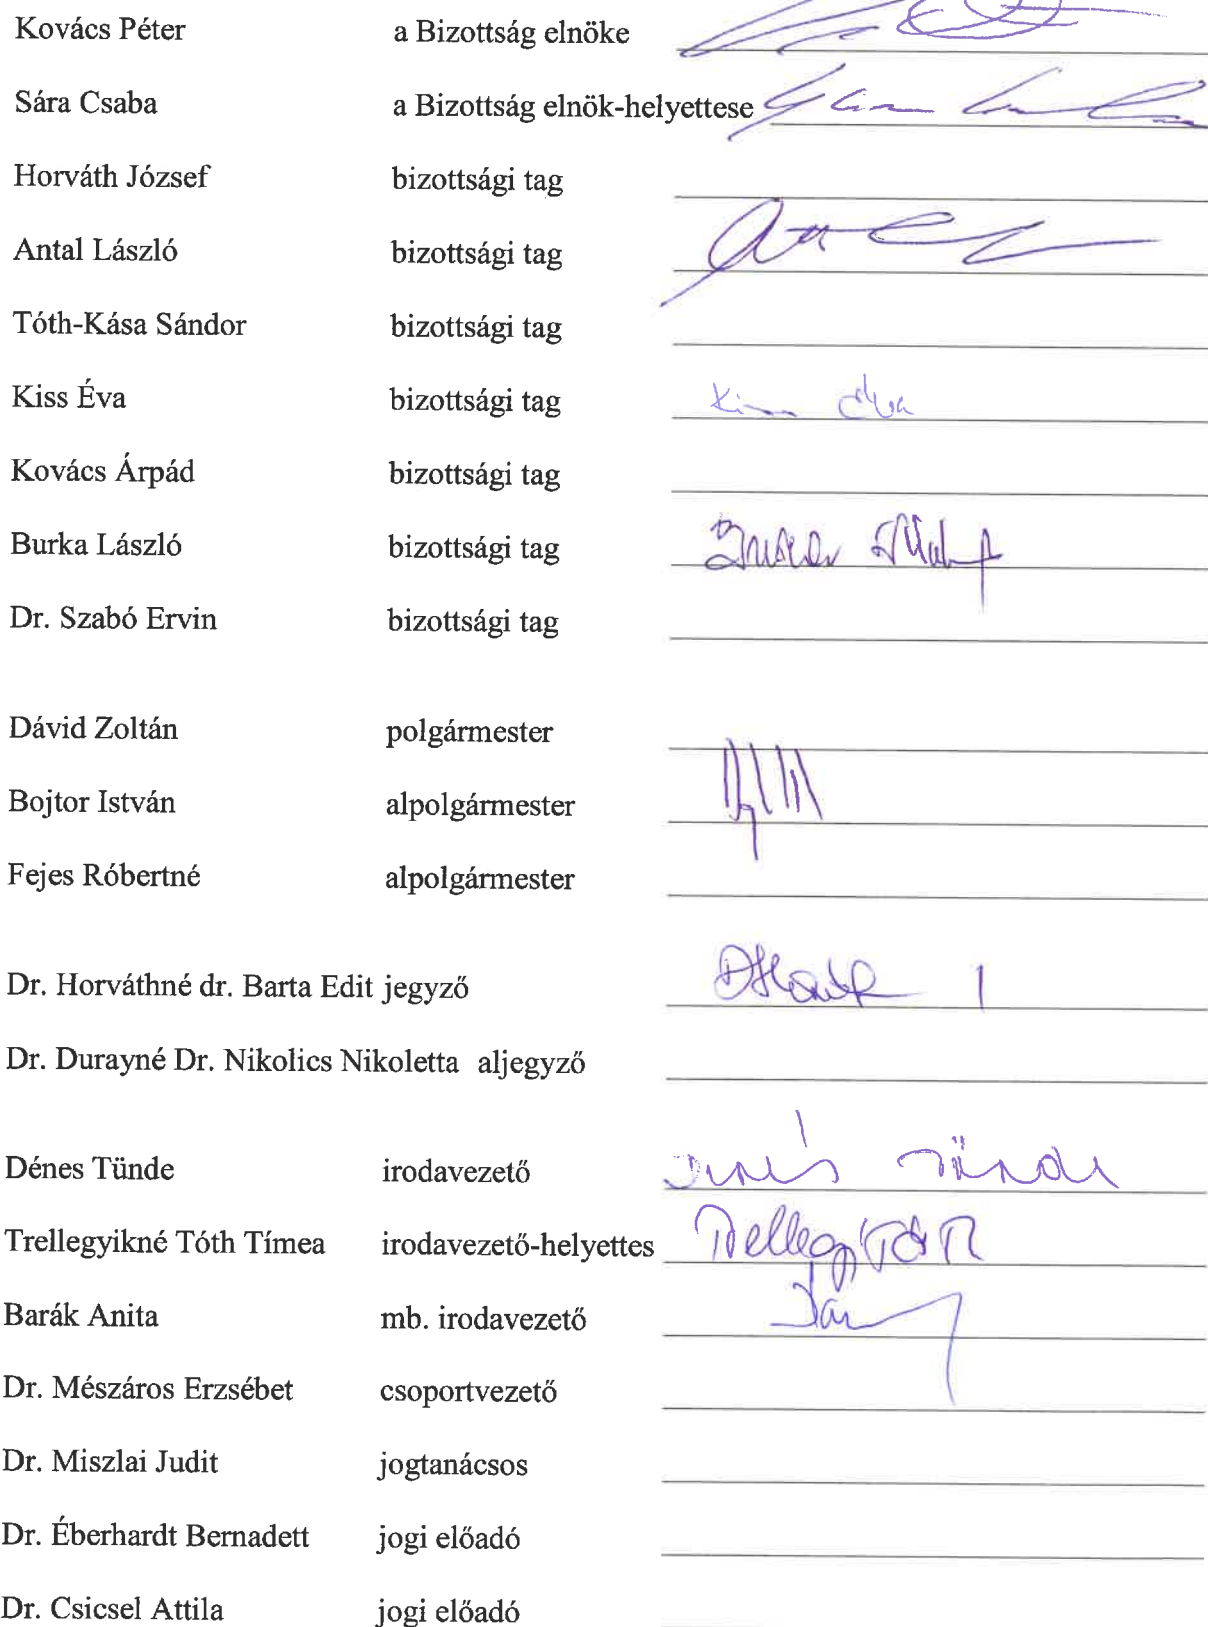 Kovács Péter a Bizottság elnöke
Sára Csaba a Bizottság elnök-helyettese
Horváth József bizottsági tag
Antal László bizottsági tag
Tóth-Kása Sándor bizottsági tag
Kiss Éva bizottsági tag Kiss Éva
Kovács Árpád bizottsági tag
Burka László bizottsági tag
Dr. Szabó Ervin bizottsági tag
Dávid Zoltán polgármester
Bojtor István alpolgármester
Fejes Róbertné alpolgármester
Dr. Horváthné dr. Barta Edit jegyző
Dr. Durayné Dr. Nikolics Nikoletta aljegyző
Dénes Tünde irodavezető Dénes Tünde
Trellegyikné Tóth Tímea irodavezető-helyettes
Barák Anita mb. irodavezető
Dr. Mészáros Erzsébet csoportvezető
Dr. Miszlai Judit jogtanácsos
Dr. Éberhardt Bernadett jogi előadó
Dr. Csicsel Attila jogi előadó